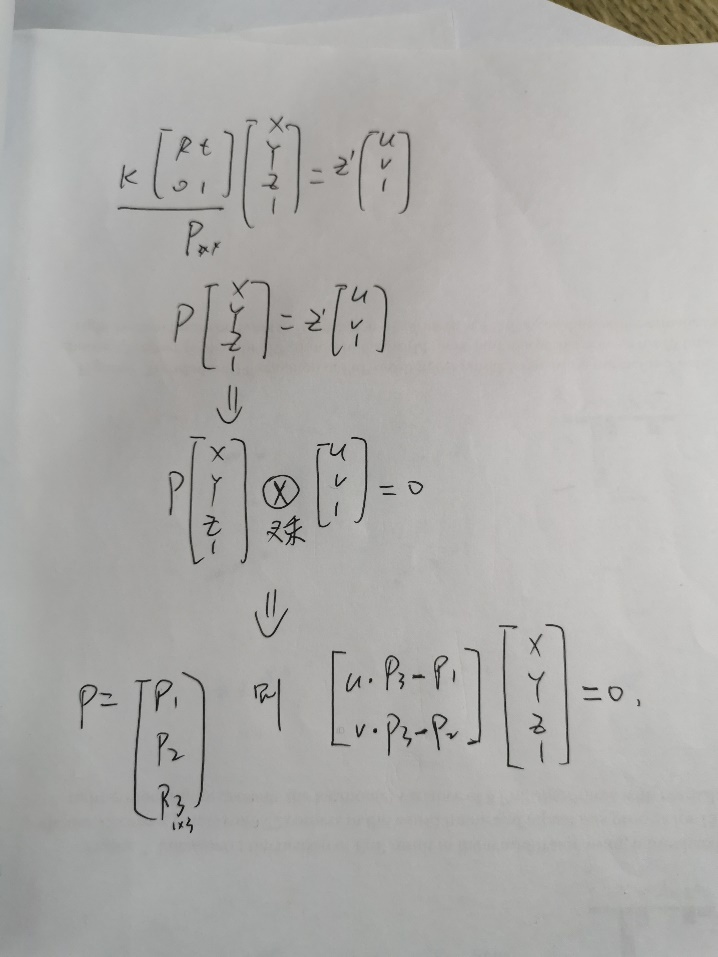 K [R t 0 1] [X Y Z 1] = z' [u v 1]
P
P [X Y Z 1] = z' [u v 1]
⇓
P [X Y Z 1] ⊗ [u v 1] = 0
叉乘
⇓
P = [P1 P2 P3] 则 [u·P3-P1 v·P3-P2] [X Y Z 1] = 0,
1×3